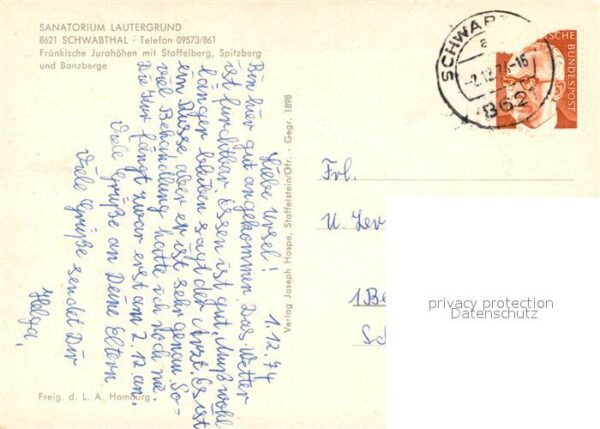 SANATORIUM LAUTERGRUND
8621 SCHWABTHAL · Telefon 09573/861
Fränkische Jurahöhen mit Staffelberg, Spitzberg
und Banzberge
1.12.74
Liebe Ursel!
Bin hier gut angekommen. Das Wetter
ist furchtbar. Essen ist gut. Muß wohl
länger bleiben sagt der Arzt. Es ist
ein Russe aber er ist sehr genau. So-
viel Behandlung hatte ich noch nie.
Die Kur fängt zwar erst am 2.12 an,
Viele Grüße an Deine Eltern
Viele Grüße sendet Dir
Helga,
Freig. d. L. A. Hamburg.
Verlag Joseph Haspe, Staffelstein/Ofr. - Gegr. 1898
SCHWABT
a
-2.12.74-16
862
SCHE BUNDESPOST
Frl.
U. Lev
1 Be
Sc
privacy protection
Datenschutz